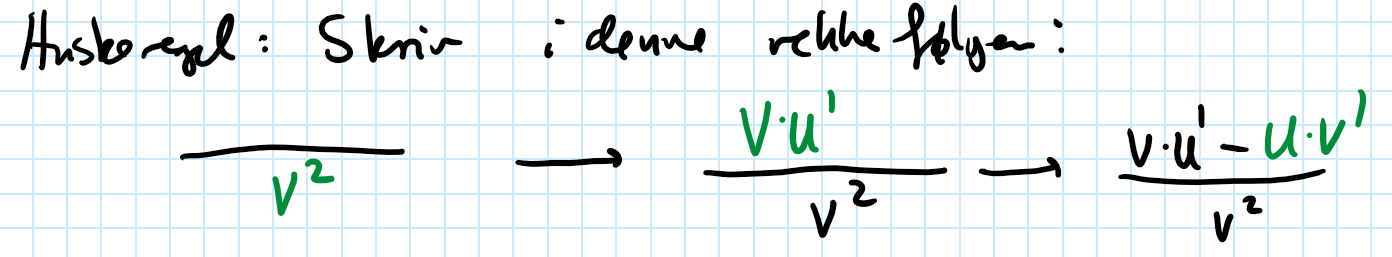 Huskeregel: Skriv i denne rekkefølgen:
$\frac{}{v^2} \longrightarrow \frac{v \cdot u'}{v^2} \longrightarrow \frac{v \cdot u' - u \cdot v'}{v^2}$